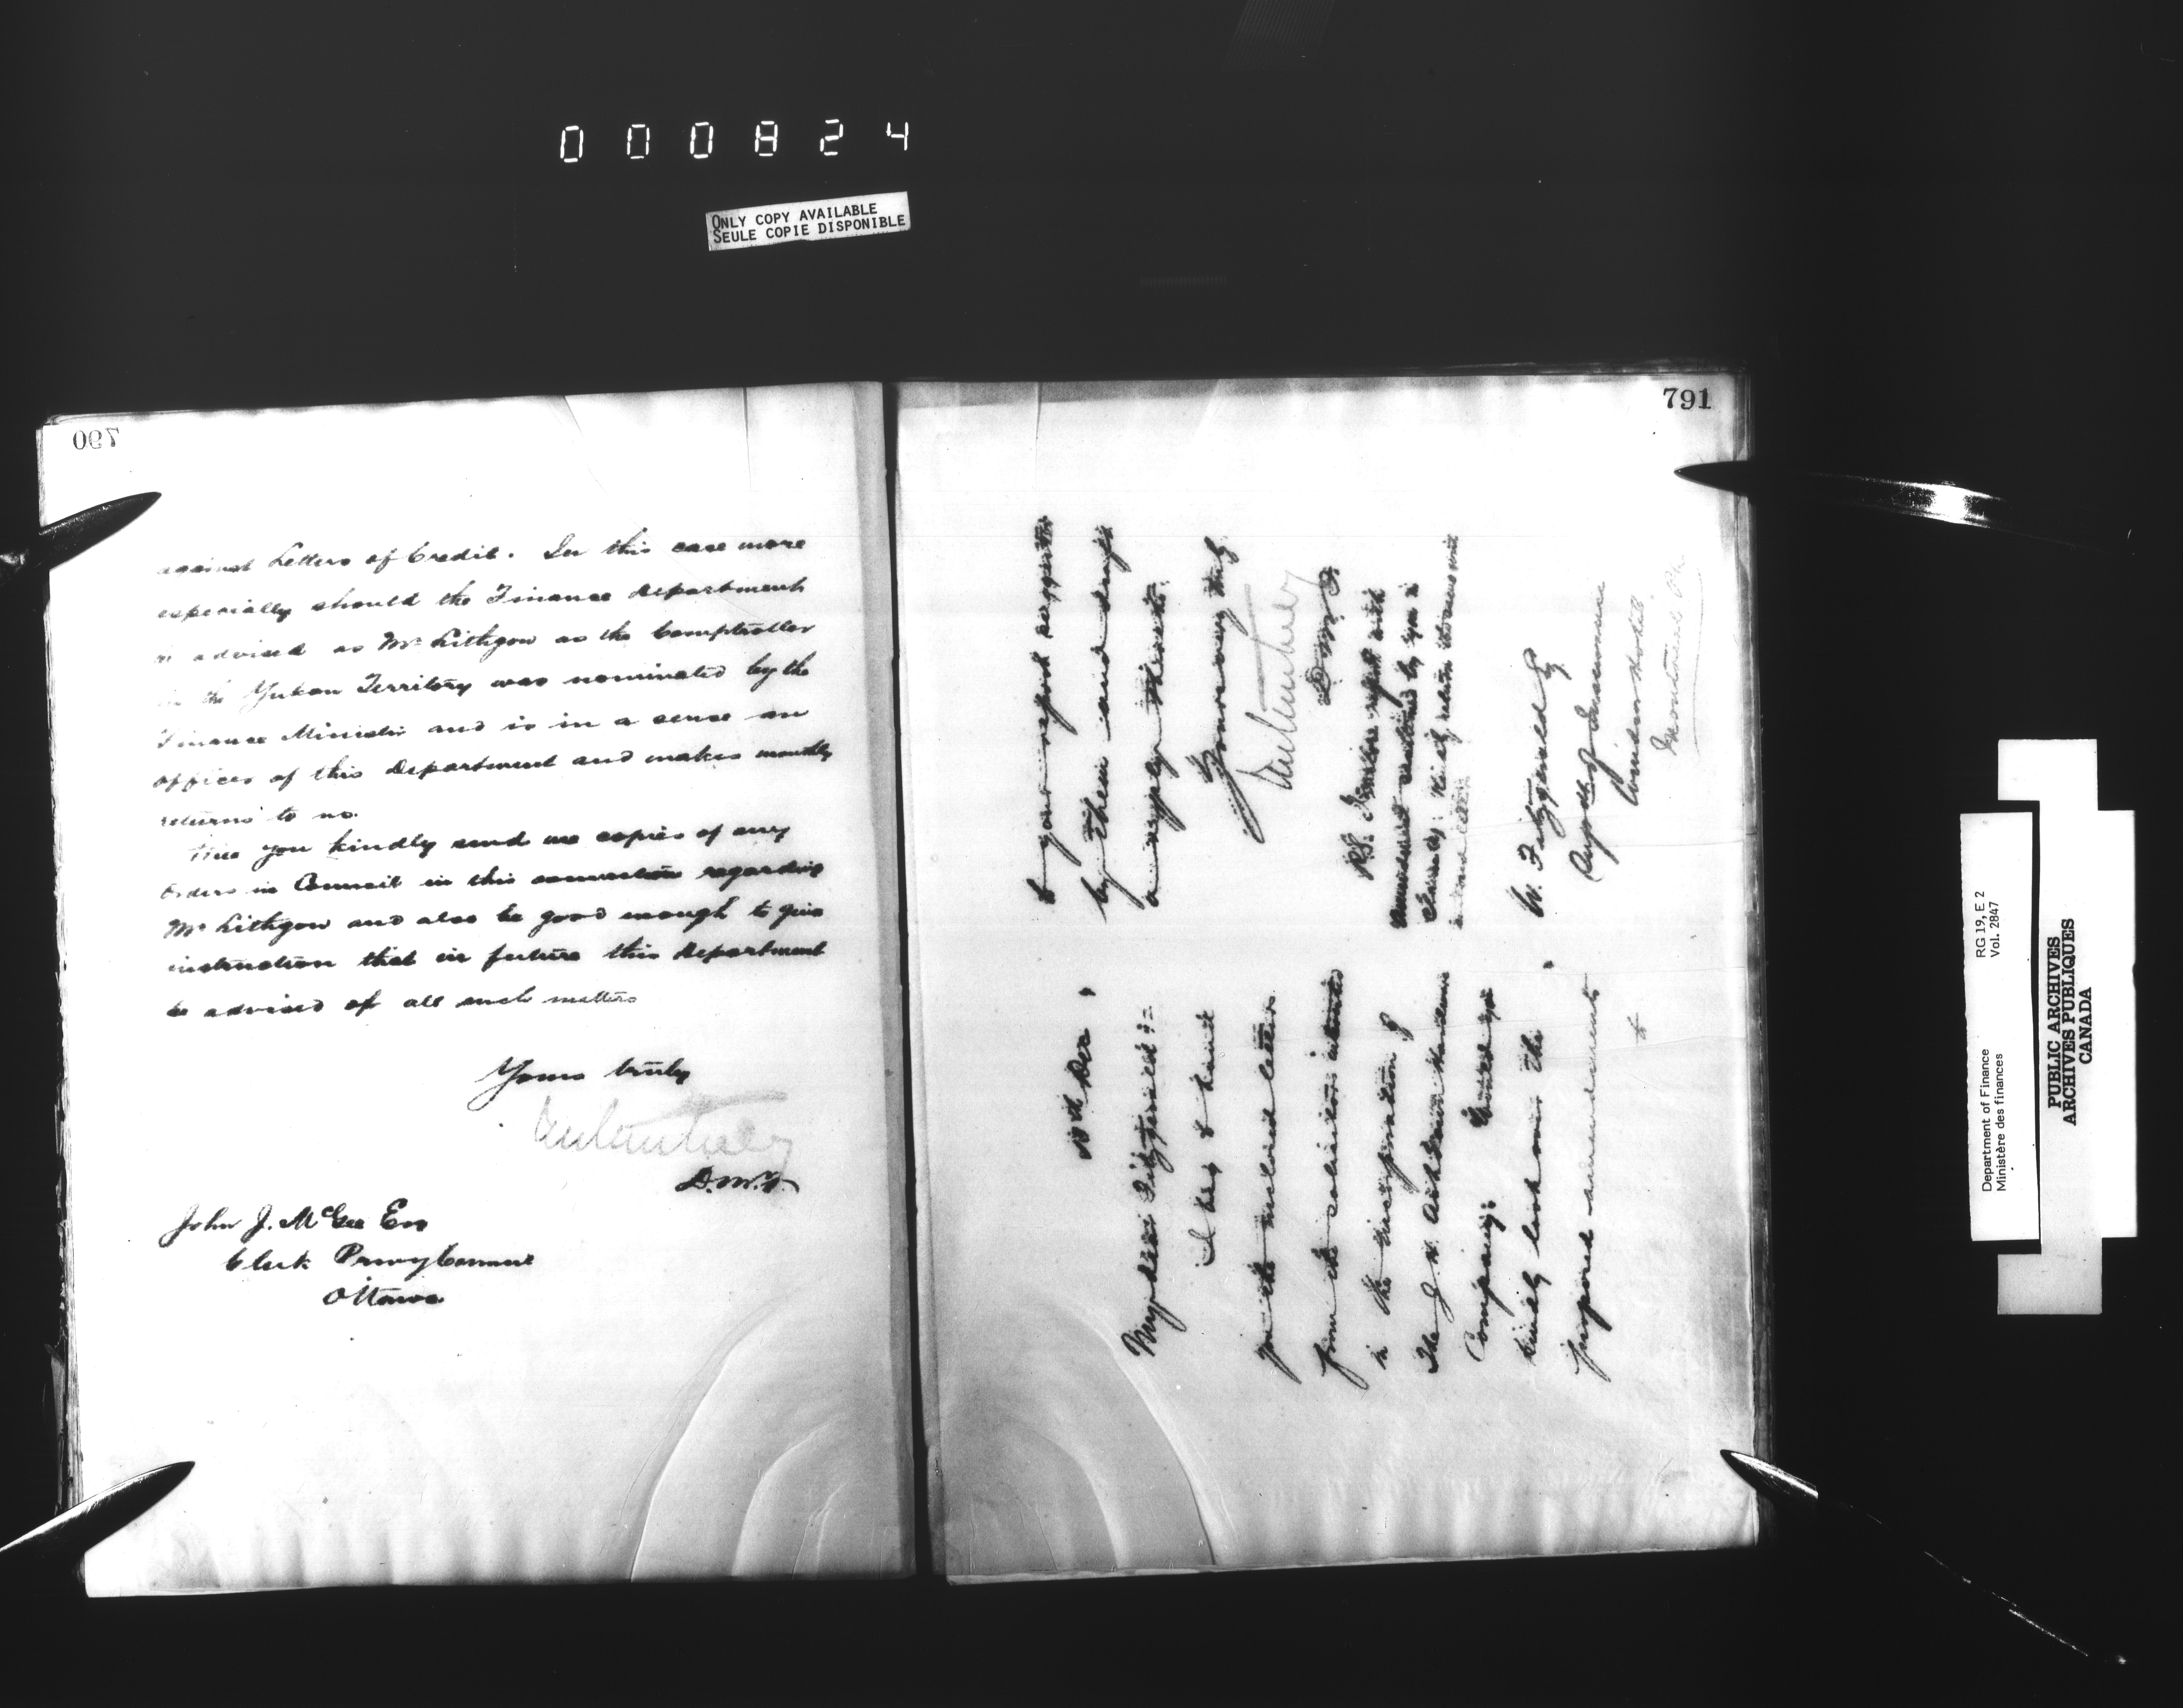 000824
ONLY COPY AVAILABLE
SEULE COPIE DISPONIBLE
790
against Letters of Credit. In this case more
especially should the Finance Department
be advised as Mr Lithgow as the Comptroller
in the Yukon Territory was nominated by the
Finance Minister and is in a sense an
officer of this Department and makes monthly
returns to us.
Will you kindly send me copies of any
Orders in Council in this connection regarding
Mr Lithgow and also be good enough to give
instruction that in future this Department
be advised of all such matters
Yours truly
D.M.F.
John J. McGee Esq
Clerk Privy Council
Ottawa
791
Dec
My dear Fitzgerald:-
I beg to hand
you the enclosed letter
from the solicitors interested
in the incorporation of
The J. N.
Company. Would you
kindly look over the
proposed amendments
to
to your
by them and draft
a reply thereto.
Yours very truly
D.M.F.
P.S. I
by you in
kindly return the same with
W. Fitzgerald Esq
Supt of Insurance
Windsor Hotel
Montreal P.Q.
Department of Finance
Ministère des finances
RG 19, E 2
Vol. 2847
PUBLIC ARCHIVES
ARCHIVES PUBLIQUES
CANADA